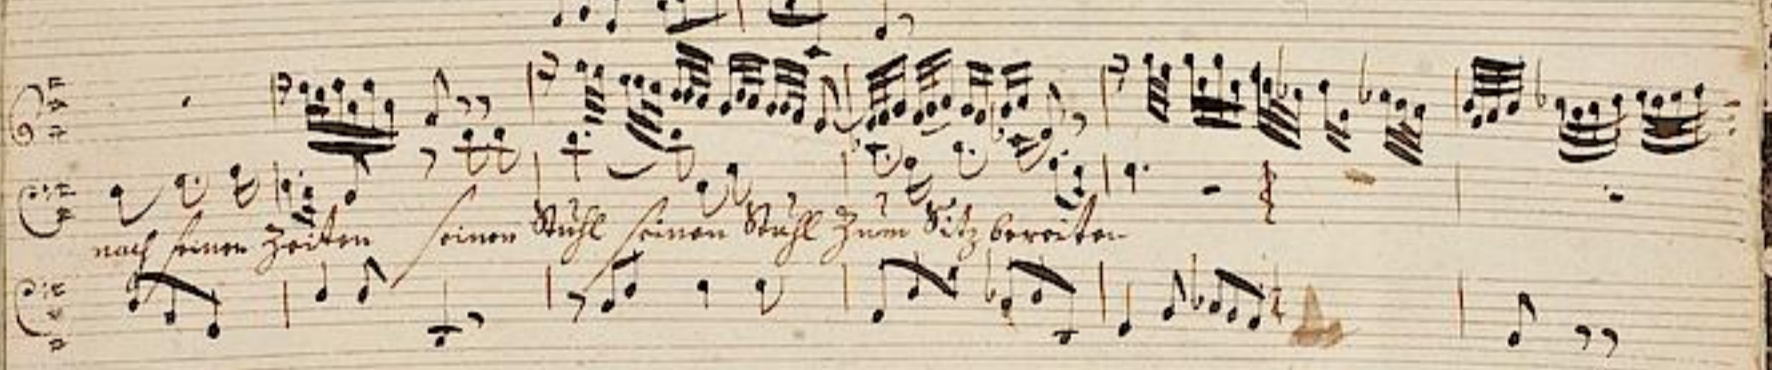 nach seinen Zeiten seinen Stuhl seinen Stuhl zum Sitz bereiten